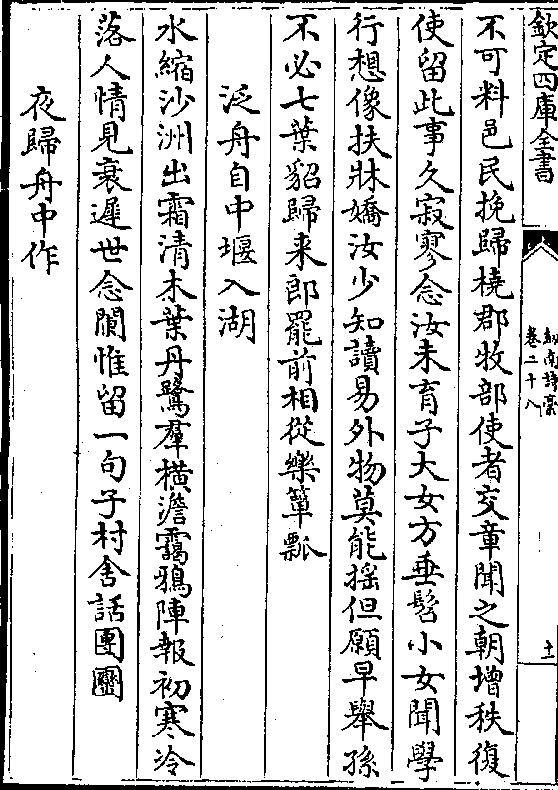 欽定四庫全書
劍南詩槀
卷二十八
十一
不可料邑民挽歸橈郡牧部使者交章聞之朝增秩復
使留此事久寂寥念汝未育子大女方垂髫小女聞學
行想像扶牀嬌汝少知讀易外物莫能揺但願早舉孫
不必七葉貂歸来郎罷前相從樂簞瓢
泛舟自中堰入湖
水縮沙洲出霜清木葉丹鷺羣横澹靄鴉陣報初寒冷
落人情見衰遲世念闌惟留一句子村舍話團圞
夜歸舟中作